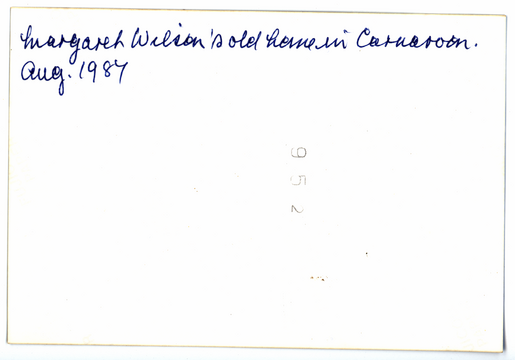 Margaret Wilson's old home in Carnarvon.
Aug. 1987
952